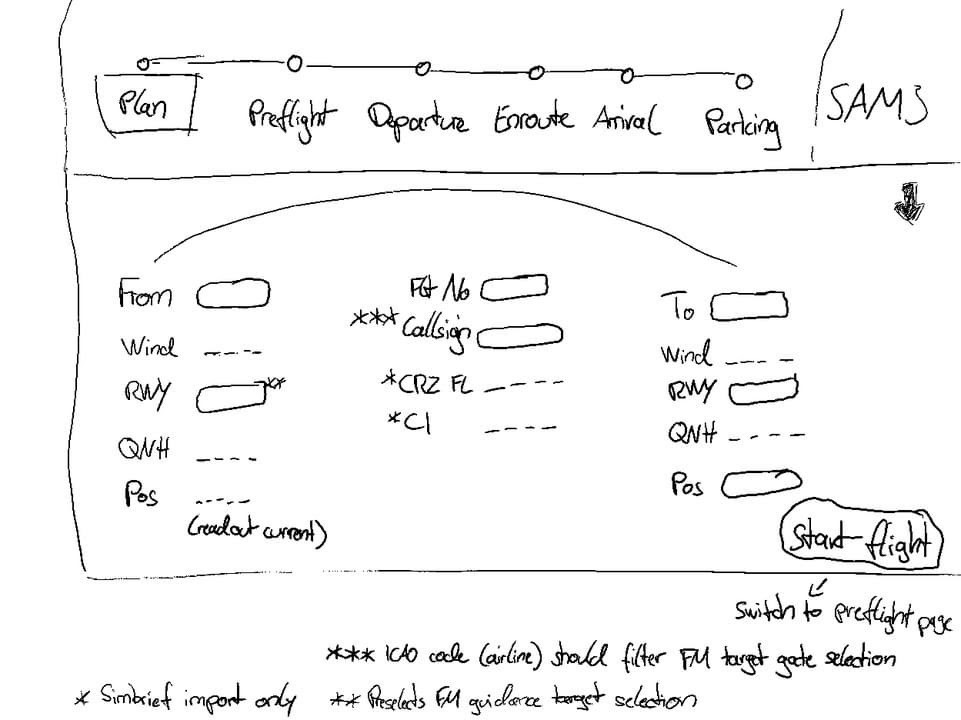 Plan Preflight Departure Enroute Arrival Parking SAM3
From Flt No To
Wind ---- *** Callsign Wind ----
RWY ** * CRZ FL ---- RWY
QNH ---- * CI ---- QNH ----
Pos ----- Pos
(readout current)
Start flight
Switch to preflight page
*** ICAO code (airline) should filter FM target gate selection
* Simbrief import only ** Preselects FM guidance target selection